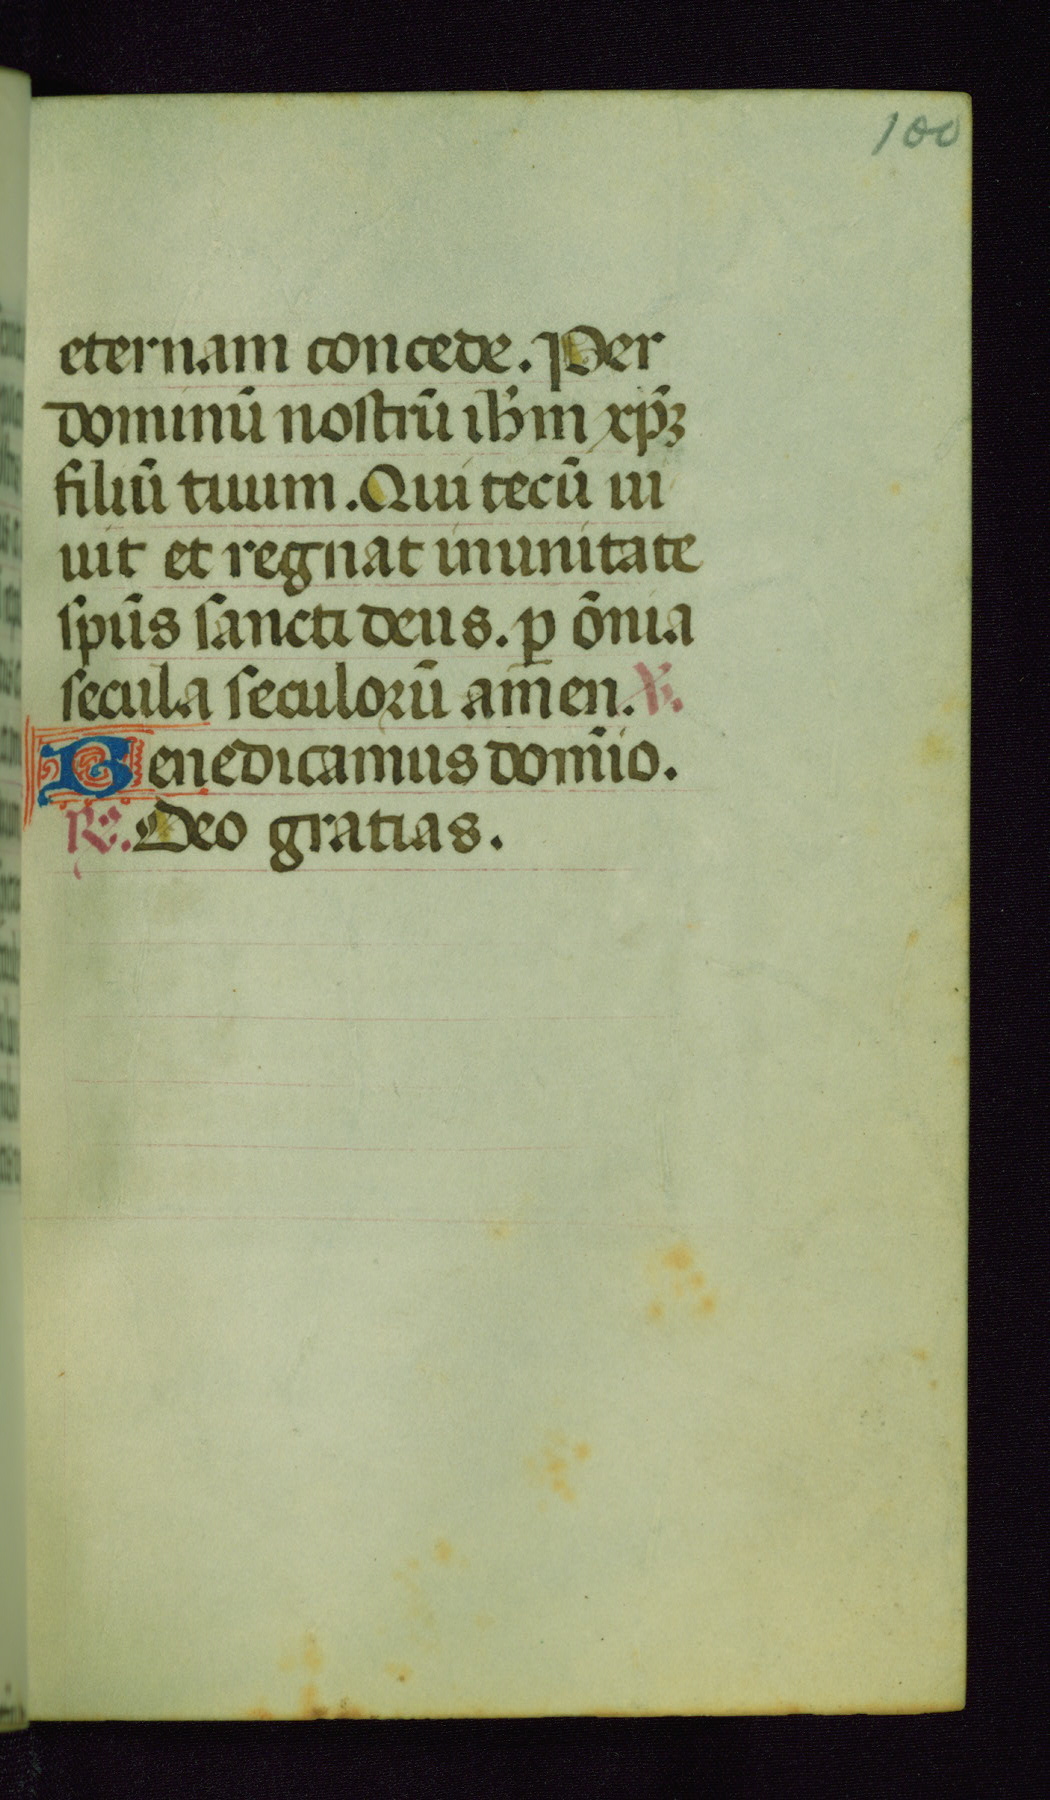 100
eternam concede. Per
dominū nostrū ihm̄ xp̄ꝫ
filiū tuum. Qui tecū ui
uit et regnat inunitate
spūs sancti deus. ꝑ ōnia
secula seculorū amen. ℣.
Benedicamus dom̄io.
℟. Deo gratias.